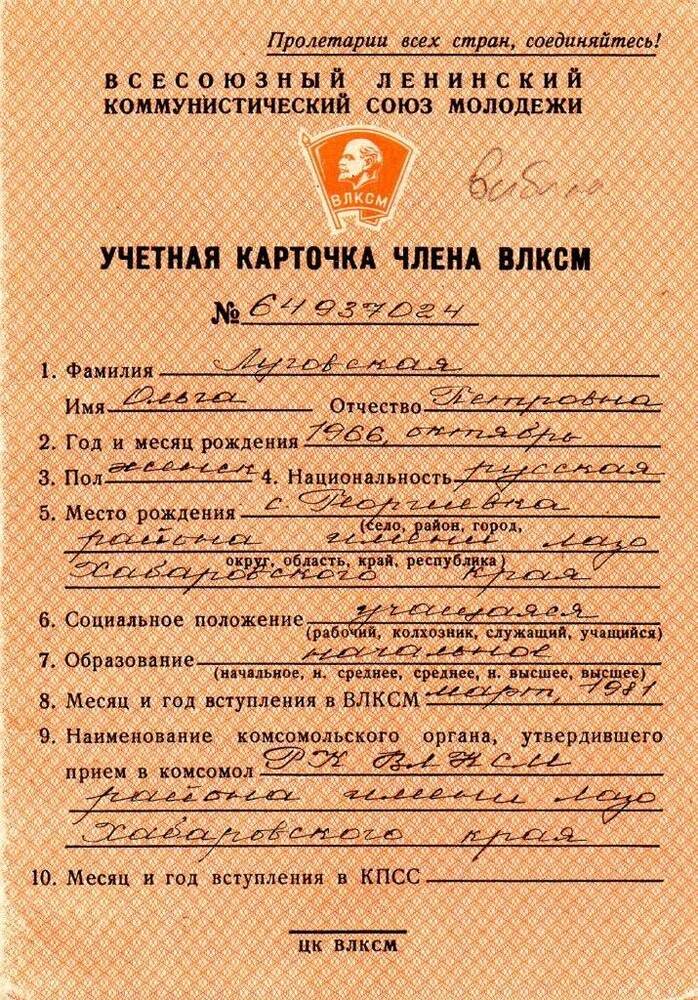 Пролетарии всех стран, соединяйтесь!
ВСЕСОЮЗНЫЙ ЛЕНИНСКИЙ
КОММУНИСТИЧЕСКИЙ СОЮЗ МОЛОДЕЖИ
ВЛКСМ
УЧЕТНАЯ КАРТОЧКА ЧЛЕНА ВЛКСМ
№ 64937024
1. Фамилия Луговская
Имя Ольга Отчество Петровна
2. Год и месяц рождения 1966, октябрь
3. Пол женск 4. Национальность русская
5. Место рождения с. Георгиевка
(село, район, город,
района имени Лазо
округ, область, край, республика)
Хабаровского края
6. Социальное положение учащаяся
(рабочий, колхозник, служащий, учащийся)
7. Образование начальное
(начальное, н. среднее, среднее, н. высшее, высшее)
8. Месяц и год вступления в ВЛКСМ март, 1981
9. Наименование комсомольского органа, утвердившего
прием в комсомол РК ВЛКСМ
района имени Лазо
Хабаровского края
10. Месяц и год вступления в КПСС
ЦК ВЛКСМ